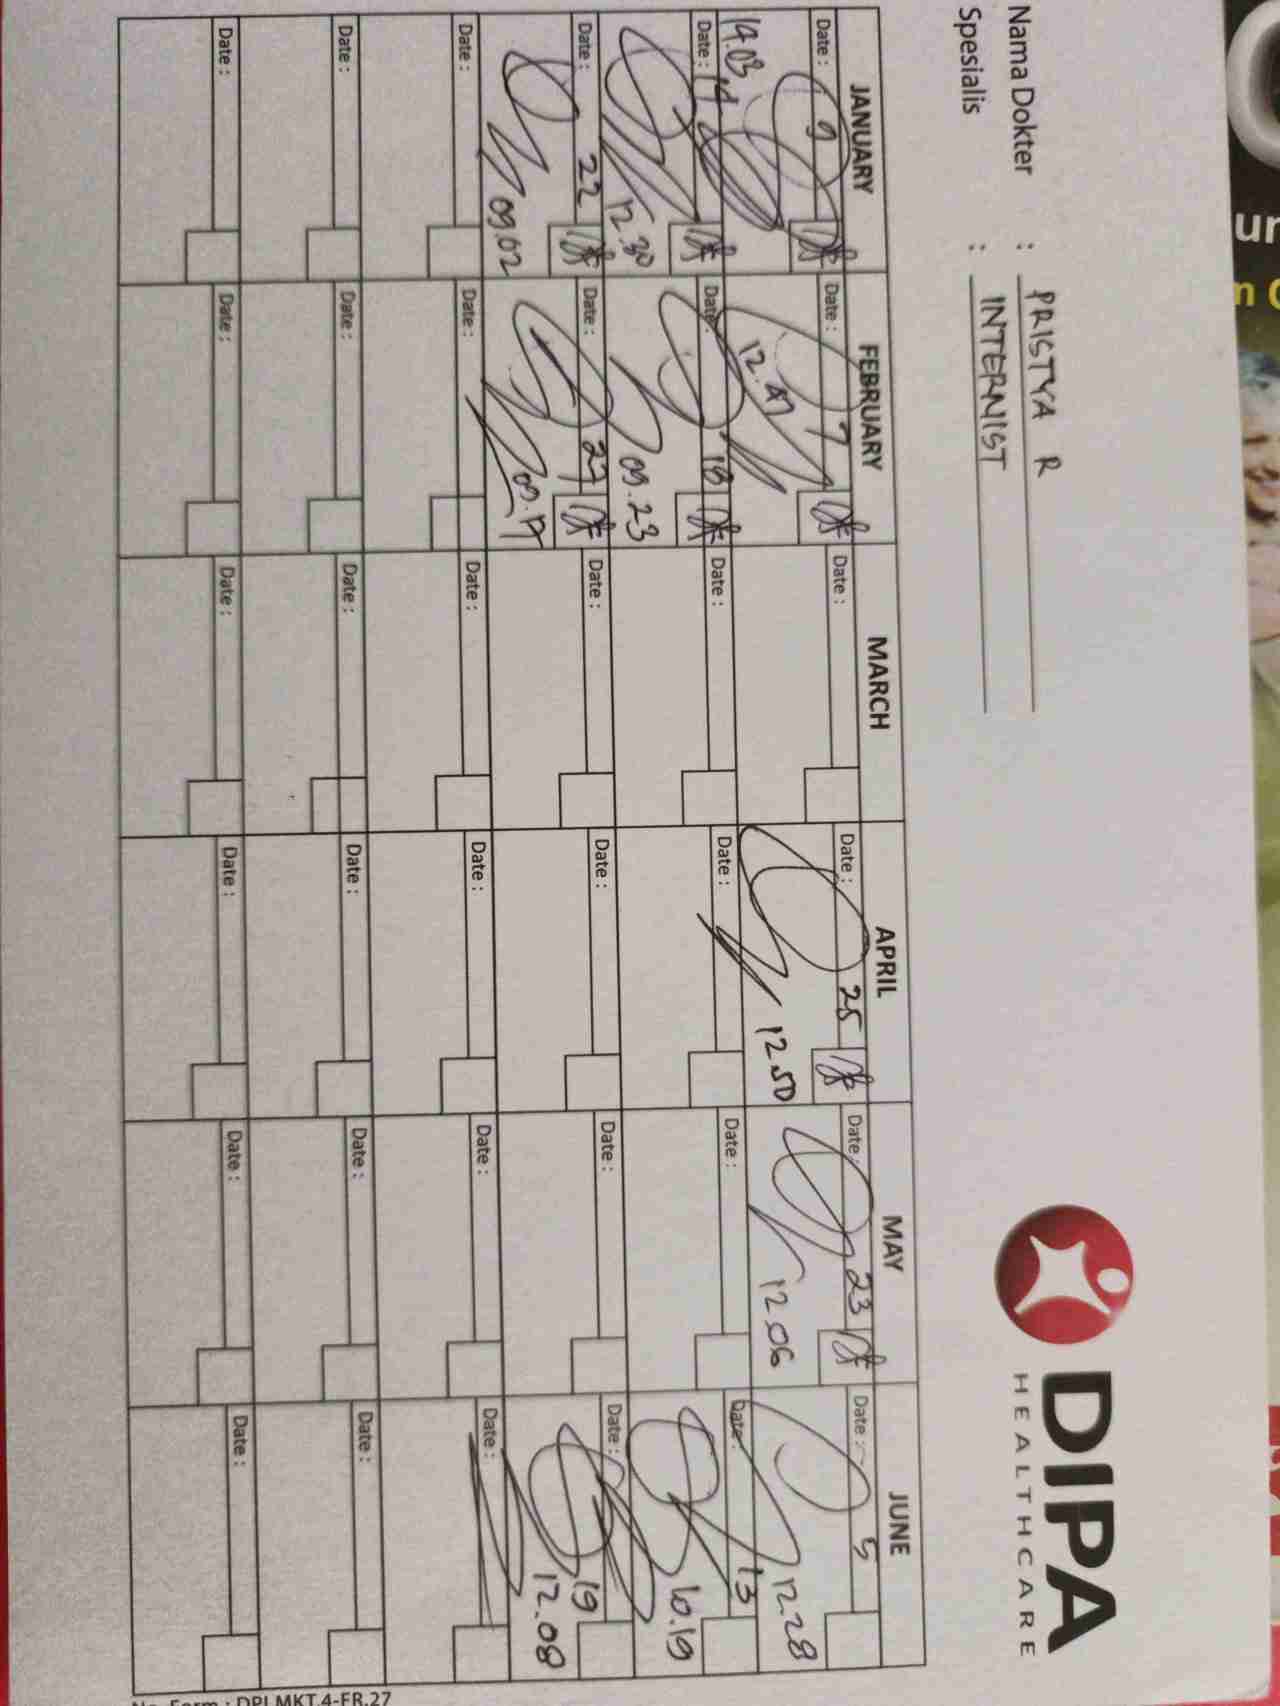 DIPA
HEALTHCARE
Nama Dokter : PRISTYA R
Spesialis : INTERNIST
JANUARY FEBRUARY MARCH APRIL MAY JUNE
Date : 9 Date : 7 Date : Date : 25 Date : 23 Date : 5
14.03 12.47 12.50 12.06 12.28
Date : 14 Date : 18 Date : Date : Date : Date : 13
12.30 09.23 10.19
Date : 22 Date : 27 Date : Date : Date : Date : 19
09.02 09.17 12.08
Date : Date : Date : Date : Date : Date :
Date : Date : Date : Date : Date : Date :
Date : Date : Date : Date : Date : Date :
No. Form : DPI.MKT.4-FR.27